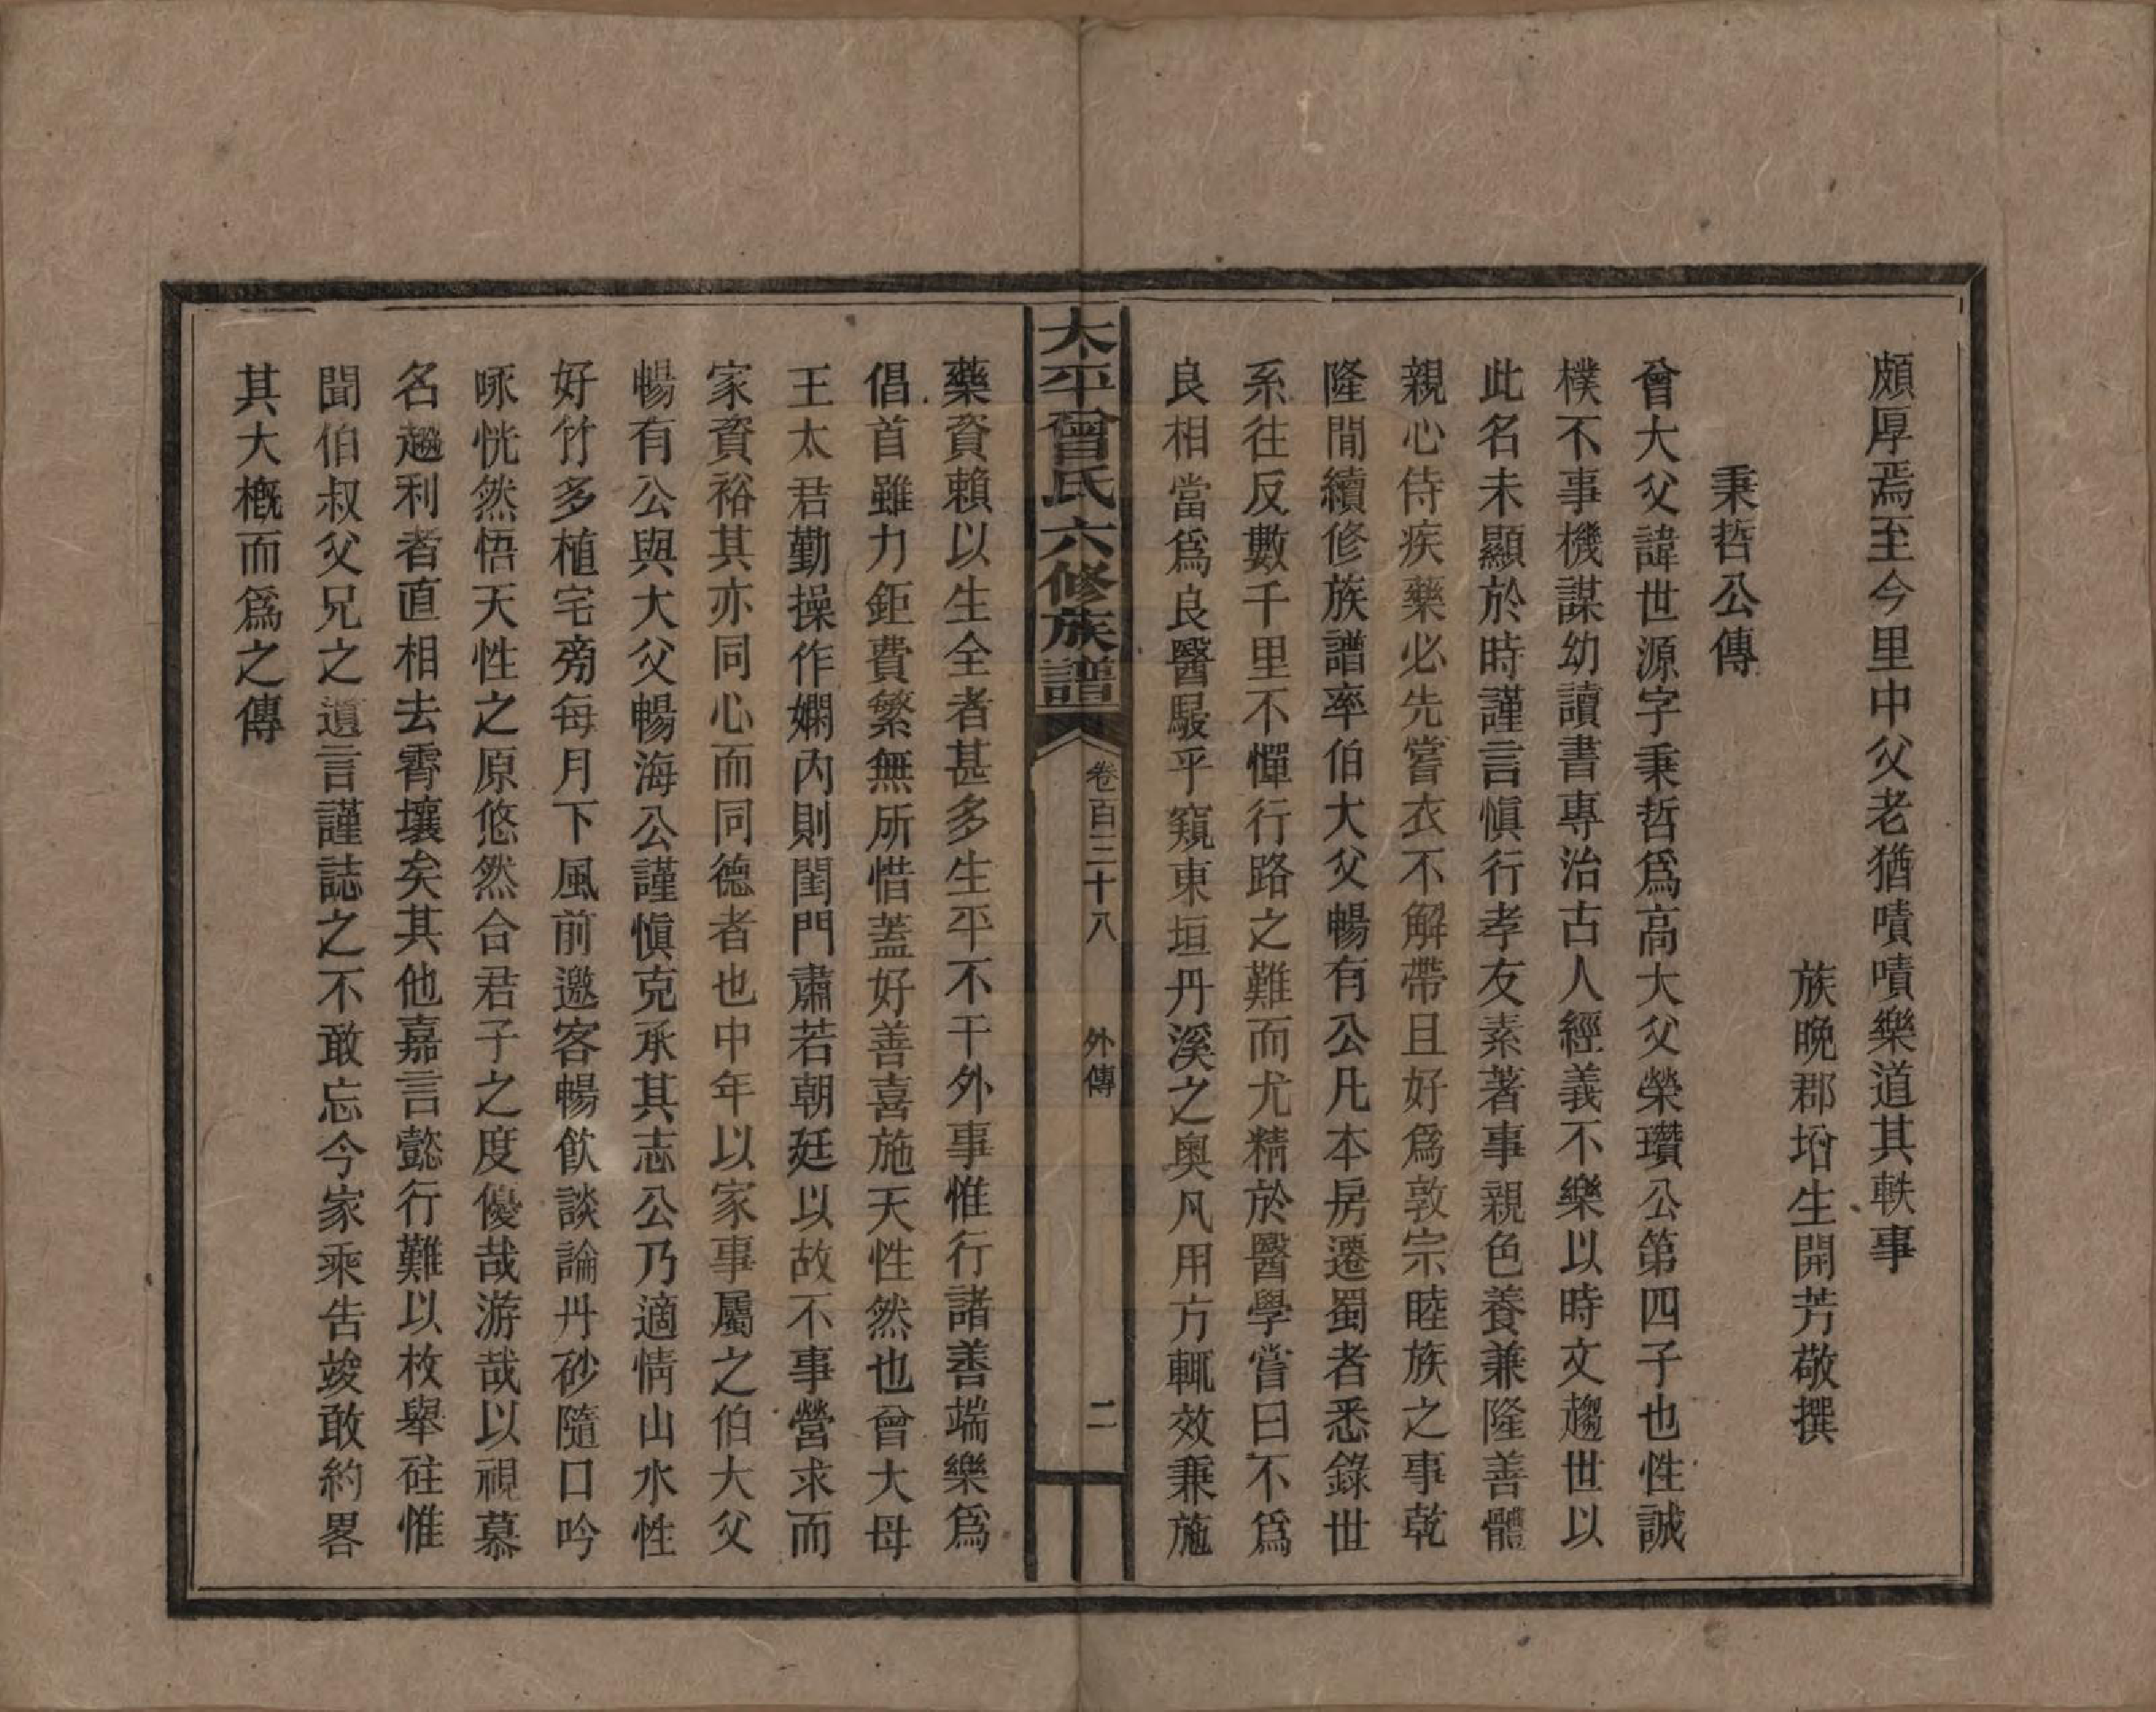 頗厚焉至今里中父老猶嘖嘖樂道其軼事
族晚郡坿生開芳敬撰
秉哲公傳
曾大父諱世源字秉哲爲高大父榮瓚公第四子也性誠
樸不事機謀幼讀書專治古人經義不樂以時文趨世以
此名未顯於時謹言愼行孝友素著事親色養兼隆善體
親心侍疾藥必先嘗衣不解帶且好爲敦宗睦族之事乾
隆間續修族譜率伯大父暢有公凡本房遷蜀者悉錄世
系往反數千里不憚行路之難而尤精於醫學嘗曰不爲
良相當爲良醫駸乎窺東垣丹溪之奧凡用方輒效兼施
太平曾氏六修族譜
卷百三十八
外傳
二
藥資賴以生全者甚多生平不干外事惟行諸善端樂爲
倡首雖力鉅費繁無所惜蓋好善喜施天性然也曾大母
王太君勤操作嫻內則閨門肅若朝廷以故不事營求而
家資裕其亦同心而同德者也中年以家事屬之伯大父
暢有公與大父暢海公謹愼克承其志公乃適情山水性
好竹多植宅旁每月下風前邀客暢飮談論丹砂隨口吟
咏恍然悟天性之原悠然合君子之度優哉游哉以視慕
名趨利者直相去霄壤矣其他嘉言懿行難以枚舉砫惟
聞伯叔父兄之遺言謹誌之不敢忘今家乘告竣敢約畧
其大槪而爲之傳